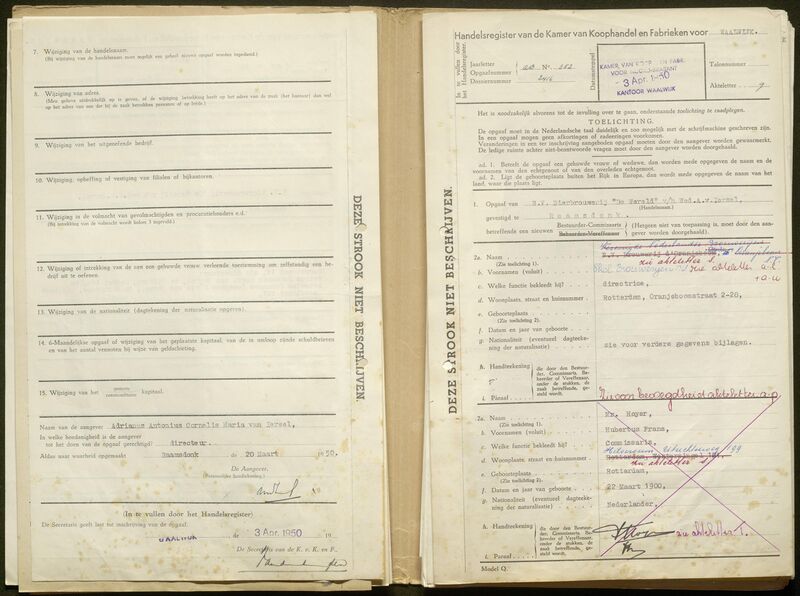 7. Wijziging van de handelsnaam.
(Bij wijziging van de handelsnaam moet tegelijk een geheel nieuwe opgaaf worden ingediend.)
8. Wijziging van adres.
(Men gelieve uitdrukkelijk op te geven, of de wijziging betrekking heeft op het adres van de zaak (het kantoor) dan wel
op het adres van een der bij de zaak betrokken personen of op beide.)
9. Wijziging van het uitgeoefende bedrijf.
10. Wijziging, opheffing of vestiging van filialen of bijkantoren.
11. Wijziging in de volmacht van gevolmachtigden en procuratiehouders e.d.
(Bij intrekking van de volmacht wordt kolom 3 ingevuld.)
12. Wijziging of intrekking van de aan een gehuwde vrouw verleende toestemming om zelfstandig een be-
drijf uit te oefenen.
13. Wijziging van de nationaliteit (dagtekening der naturalisatie opgeven).
14. 6-Maandelijkse opgaaf of wijziging van het geplaatste kapitaal, van de in omloop zijnde schuldbrieven
en van het aantal vennoten bij wijze van geldschieting.
15. Wijziging van het commanditaire kapitaal.
Naam van de aangever Adrianus Antonius Cornelis Maria van Iersel,
In welke hoedanigheid is de aangever
tot het doen van de opgaaf gerechtigd? directeur.
Aldus naar waarheid opgemaakt Raamsdonk de 20 Maart 1950.
De Aangever,
(Persoonlijke handtekening)
(In te vullen door het Handelsregister)
De Secretaris geeft last tot inschrijving van de opgaaf.
WAALWIJK de 3 Apr. 1950 19
De Secretaris van de K. v. K. en F.,
DEZE STROOK NIET BESCHRIJVEN.
DEZE STROOK NIET BESCHRIJVEN.
Handelsregister van de Kamer van Koophandel en Fabrieken voor WAALWIJK.
In te vullen door het Handelsregister.
Jaarletter
Opgaafnummer No. 252
Dossiernummer 2416
Dossierstempel
KAMER VAN KOOPH. EN FABR.
VOOR MIDDEN-BRABANT
-3 Apr. 1950
KANTOOR WAALWIJK
Talonnummer
Akteletter q
Het is noodzakelijk alvorens tot de invulling over te gaan, onderstaande toelichting te raadplegen.
TOELICHTING.
De opgaaf moet in de Nederlandsche taal duidelijk en zoo mogelijk met de schrijfmachine geschreven zijn.
In een opgaaf mogen geen afkortingen of raderingen voorkomen.
Veranderingen in een ter inschrijving aangeboden opgaaf moeten door den aangever worden gewaarmerkt.
De ledige ruimte achter niet-beantwoorde vragen moet door den aangever worden doorgehaald.
ad. 1. Betreft de opgaaf een gehuwde vrouw of weduwe, dan worden mede opgegeven de naam en de
voornamen van den echtgenoot of van den overleden echtgenoot.
ad. 2. Ligt de geboorteplaats buiten het Rijk in Europa, dan wordt mede opgegeven de naam van het
land, waar die plaats ligt.
1. Opgaaf van N.V. Bierbrouwerij "De Kerald" v/h Wed.A.v.Iersel,
(Handelsnaam.)
gevestigd te Raamsdonk.
betreffende een nieuwen Bestuurder-Commissaris
Beheerder-Vereffenaar
(Hetgeen niet van toepassing is, moet door den aan-
gever worden doorgehaald).
Verenigde Nederlandse Brouwerijen
2a. Naam N.V. Brouwerij d'Oranjeboom,
(Zie toelichting 1). zie akteletter s.
b. Voornamen (voluit) Skol Brouwerijen NV zie akteletter a-l
c. Welke functie bekleedt hij? directrice,
d. Woonplaats, straat en huisnummer Rotterdam, Oranjeboomstraat 2-28,
e. Geboorteplaats
(Zie toelichting 2).
f. Datum en jaar van geboorte
g. Nationaliteit (eventueel dagteeke-
ning der naturalisatie) zie voor verdere gegevens bijlagen.
h. Handteekening die door den Bestuur-
der, Commissaris, Be-
heerder of Vereffenaar,
onder de stukken, de
zaak betreffende, ge-
steld wordt.
i. Paraaf
Zie voor bevoegdheid akteletter a.p.
2a. Naam Mr. Hoyer,
(Zie toelichting 1).
b. Voornamen (voluit) Hubertus Frans,
c. Welke functie bekleedt hij? Commissaris,
Hilversum, Utrechtseweg 199
d. Woonplaats, straat en huisnummer
zie akteletter s
e. Geboorteplaats Rotterdam,
(Zie toelichting 2).
f. Datum en jaar van geboorte 22 Maart 1900,
g. Nationaliteit (eventueel dagteeke-
ning der naturalisatie) Nederlander,
h. Handteekening die door den Bestuur-
der, Commissaris, Be-
heerder of Vereffenaar,
onder de stukken, de
zaak betreffende, ge-
steld wordt.
zie akteletter T.
i. Paraaf
Model Q.